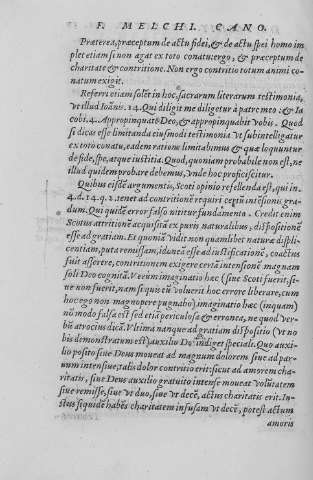 F. MELCHI. CANO.
Præterea, præceptum de actu fidei, & de actu spei homo im
plet etiam si non agat ex toto conatu: ergo, & præceptum de
charitate & contritione. Non ergo contritio totum animi co-
natum exigit.
Referri etiam solet in hoc, sacrarum literarum testimonia,
vt illud Ioânis. 14. Qui diligit me diligetur à patre meo: & Ia
cobi. 4. Appropinquate Deo, & appropinquabit vobis. Quod
si dicas esse limitanda eiusmodi testimonia vt subintelligatur
ex toto conatu, eadem ratione limitabimus & quæ loquuntur
de fide, spe, atque iustitia. Quod, quoniam probabile non est, ne
illud quidem probare debemus, vnde hoc proficiscitur.
Quibus eisdê argumentis, Scoti opinio refellenda est, qui in.
4. d. 14. q. 2. tenet ad contritionê requiri certû intêsionis gra-
dum. Qui quidê error falso nititur fundamento. Credit enim
Scotus attritionê acquisitâ ex puris naturalibus, dispositionê
esse ad gratiam. Et quoniâ vidit non quamlibet naturæ displi-
centiam, puta remissam, idoneâ esse ad iustificationê, coactus
fuit asserere, contritionem exigere certâ intensionê magnam
soli Deo cognitâ. Verùm imaginatio hæc (siue Scoti fuerit, si-
ue non fuerit, nam siquis eû voluerit hoc errore liberare, cum
hoc ego non magnopere pugnabo) imaginatio hæc (inquam)
nõ modo falsa est sed etiã periculosa & erronea, ne quod ver-
bis atrocius dicã. Vltima nanque ad gratiam dispositio (vt no
bis demonstratum est) auxilio Dei indiget speciali. Quo auxi-
lio posito siue Deus moueat ad magnum dolorem siue ad par-
uum intensiue, talis dolor contritio erit: sicut ad amorem cha-
ritatis, siue Deus auxilio gratuito intense moueat volũtatem
siue remisse, siue vt duo, siue vt decẽ, actus charitatis erit. In-
stus siquidẽ habẽs charitatem infusam vt decẽ, potest actum
amoris